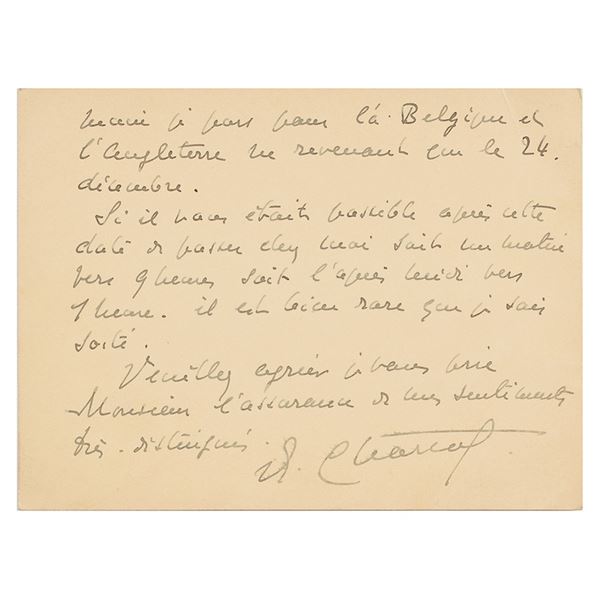 main je pars pour la Belgique et
l'Angleterre ne revenant que le 24.
décembre.
Si il vous était possible après cette
date de passer chez moi soit un matin
vers 9 heures soit l'après midi vers
1 heure. il est bien rare que je sois
sorti.
Veuillez agréer je vous prie
Monsieur l'assurance de mes sentiments
très distingués.
Charcot